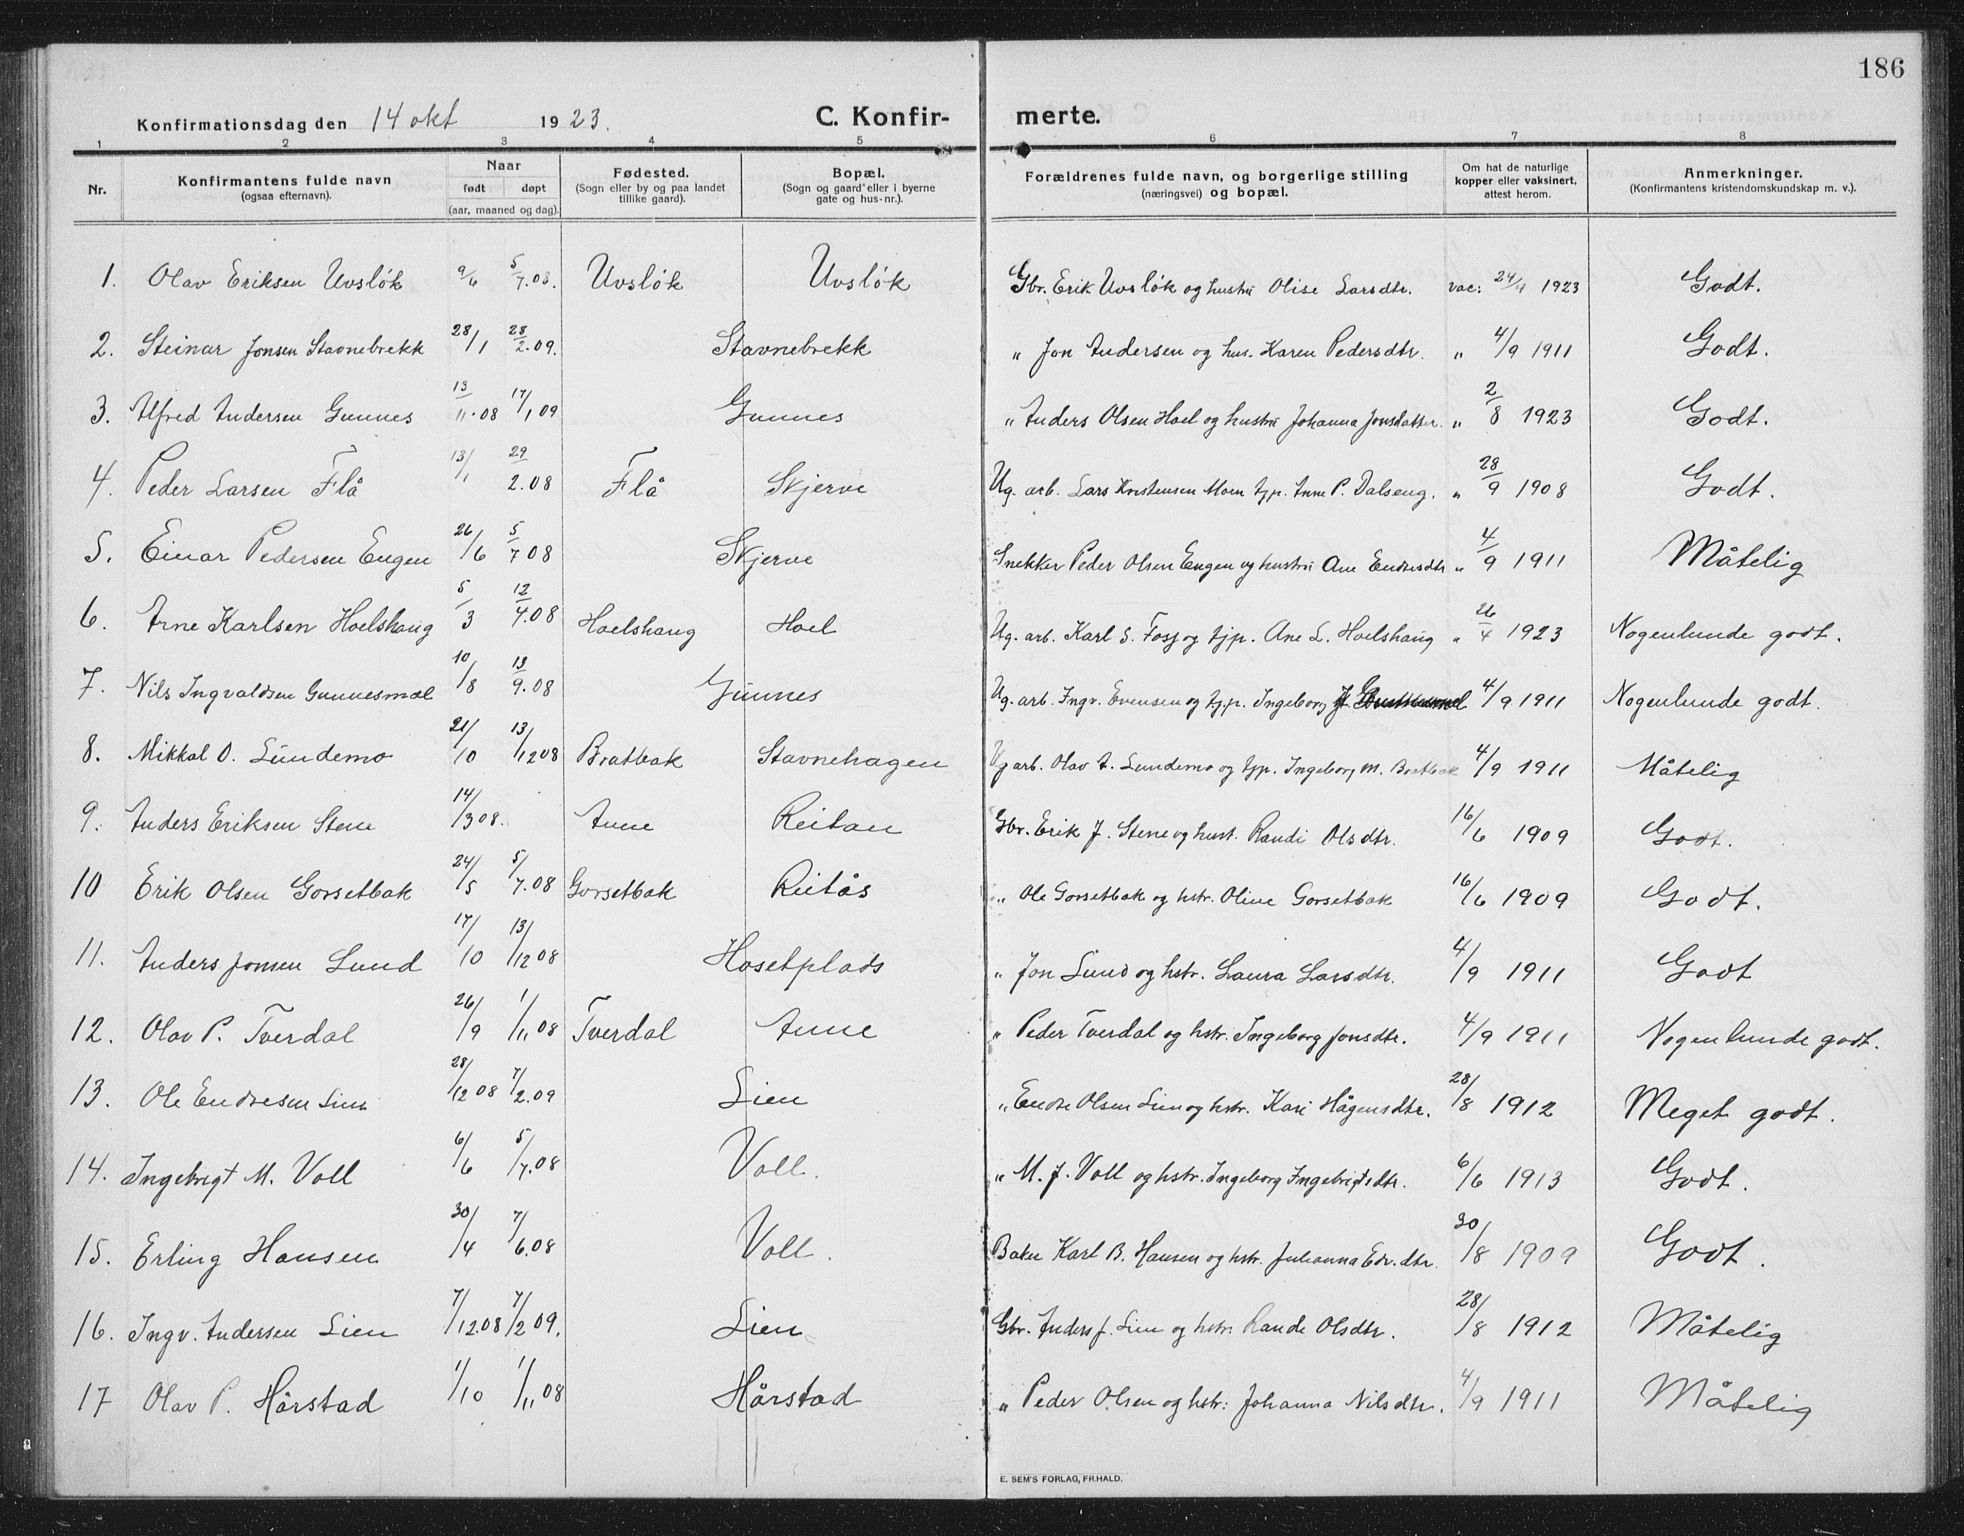 186
Konfirmationsdag den 14 okt 1923. C. Konfir- merte.
1 2 3 4 5 6 7 8
Nr. Konfirmantens fulde navn (ogsaa efternavn). Naar født døpt (aar, maaned og dag). Fødested. (Sogn eller by og paa landet tillike gaard). Bopæl. (Sogn og gaard eller i byerne gate og hus-nr.). Forældrenes fulde navn, og borgerlige stilling (næringsvei) og bopæl. Om hat de naturlige kopper eller vaksinert, attest herom. Anmerkninger. (Konfirmantens kristendomskundskap m. v.).
1. Olav Eriksen Uvsløk 9/6 5/7.08. Uvsløk Uvsløk Gbr. Erik Uvsløk og hustru Olise Larsdtr. vac: 24/4 1923 Godt.
2. Steinar Jonsen Stavnebrekk 28/1 28/2.09. Stavnebrekk " Jon Andersen og hus. Karen Pedersdtr. " 4/9 1911 Godt.
3. Alfred Andersen Gunnes 13/11.08 17/1 09 Gunnes " Anders Olsen Hoel og hustru Johanna Jonsdatter. " 2/8 1923 Godt.
4. Peder Larsen Flå 13/1 29/2.08 Flå Skjerve Ug. arb. Lars Kristensen Moen tjp. Anne P. Dalseng. " 28/9 1908 Godt.
5. Einar Pedersen Engen 26/6 5/7 08 Skjerve Snekker Peder Olsen Engen og hustru Ane Endresdtr " 4/9 1911 Måtelig
6. Arne Karlsen Hoelshaug 5/3 12/4.08 Hoelshaug Hoel Ug. arb. Karl S. Foss og tjp. Ane L. Hoelshaug " 26/4 1923 Nogenlunde godt.
7. Nils Ingvaldsen Gunnesmæl 10/8 13/9.08 Gunnes Ug. arb. Ingv. Evensen og tjp. Ingeborg 4/9 1911 Nogenlunde godt.
8. Mikkal O. Lundemo 21/10 13/12 08 Bratbak Stavnehagen Ug arb. Olav A. Lundemo og tjp. Ingeborg M. Bratbak 4/9 1911 Måtelig
9. Anders Eriksen Stene 14/3 08. Anne Reitan Gbr. Erik J. Stene og hust. Randi Olsdtr. 16/6 1909 Godt.
10 Erik Olsen Gorsetbak 24/5 5/7.08 Gorsetbak Reitås " Ole Gorsetbak og hstr. Oline Gorsetbak 16/6 1909 Godt.
11. Anders Jonsen Lund 17/10 13/12 08 Hosetplads " Jon Lund og hstr. Laura Larsdtr. 4/9 1911 Godt
12. Olav P. Tverdal 26/9 1/11 08 Tverdal Anne " Peder Tverdal og hstr. Ingeborg Jonsdtr. 4/9 1911 Nogenlunde godt.
13. Ole Endresen Lien 28/12 08 7/2.09 Lien " Endre Olsen Lien og hstr. Kari Hågensdtr. 28/8 1912 Meget godt.
14. Ingebrigt M. Voll 6/6 5/7.08 Voll. " M. J. Voll og hstr. Ingeborg Ingebrigtsdtr. 6/6 1913 Godt.
15. Erling Hansen 30/4 7/6.08 Voll. Baker Karl B. Hansen og hstr. Julianna Edv.dtr. 30/8 1909 Godt.
16. Ingv. Andersen Lien 7/12.08 7/2 09. Lien Gbr. Anders J. Lien og hstr. Randi Olsdtr. 28/8 1912 Måtelig
17 Olav P. Hårstad 1/10 1/11 08 Hårstad " Peder Olsen og hstr: Johanna Nilsdtr. 4/9 1911 Måtelig
E. SEM'S FORLAG, FR.HALD.